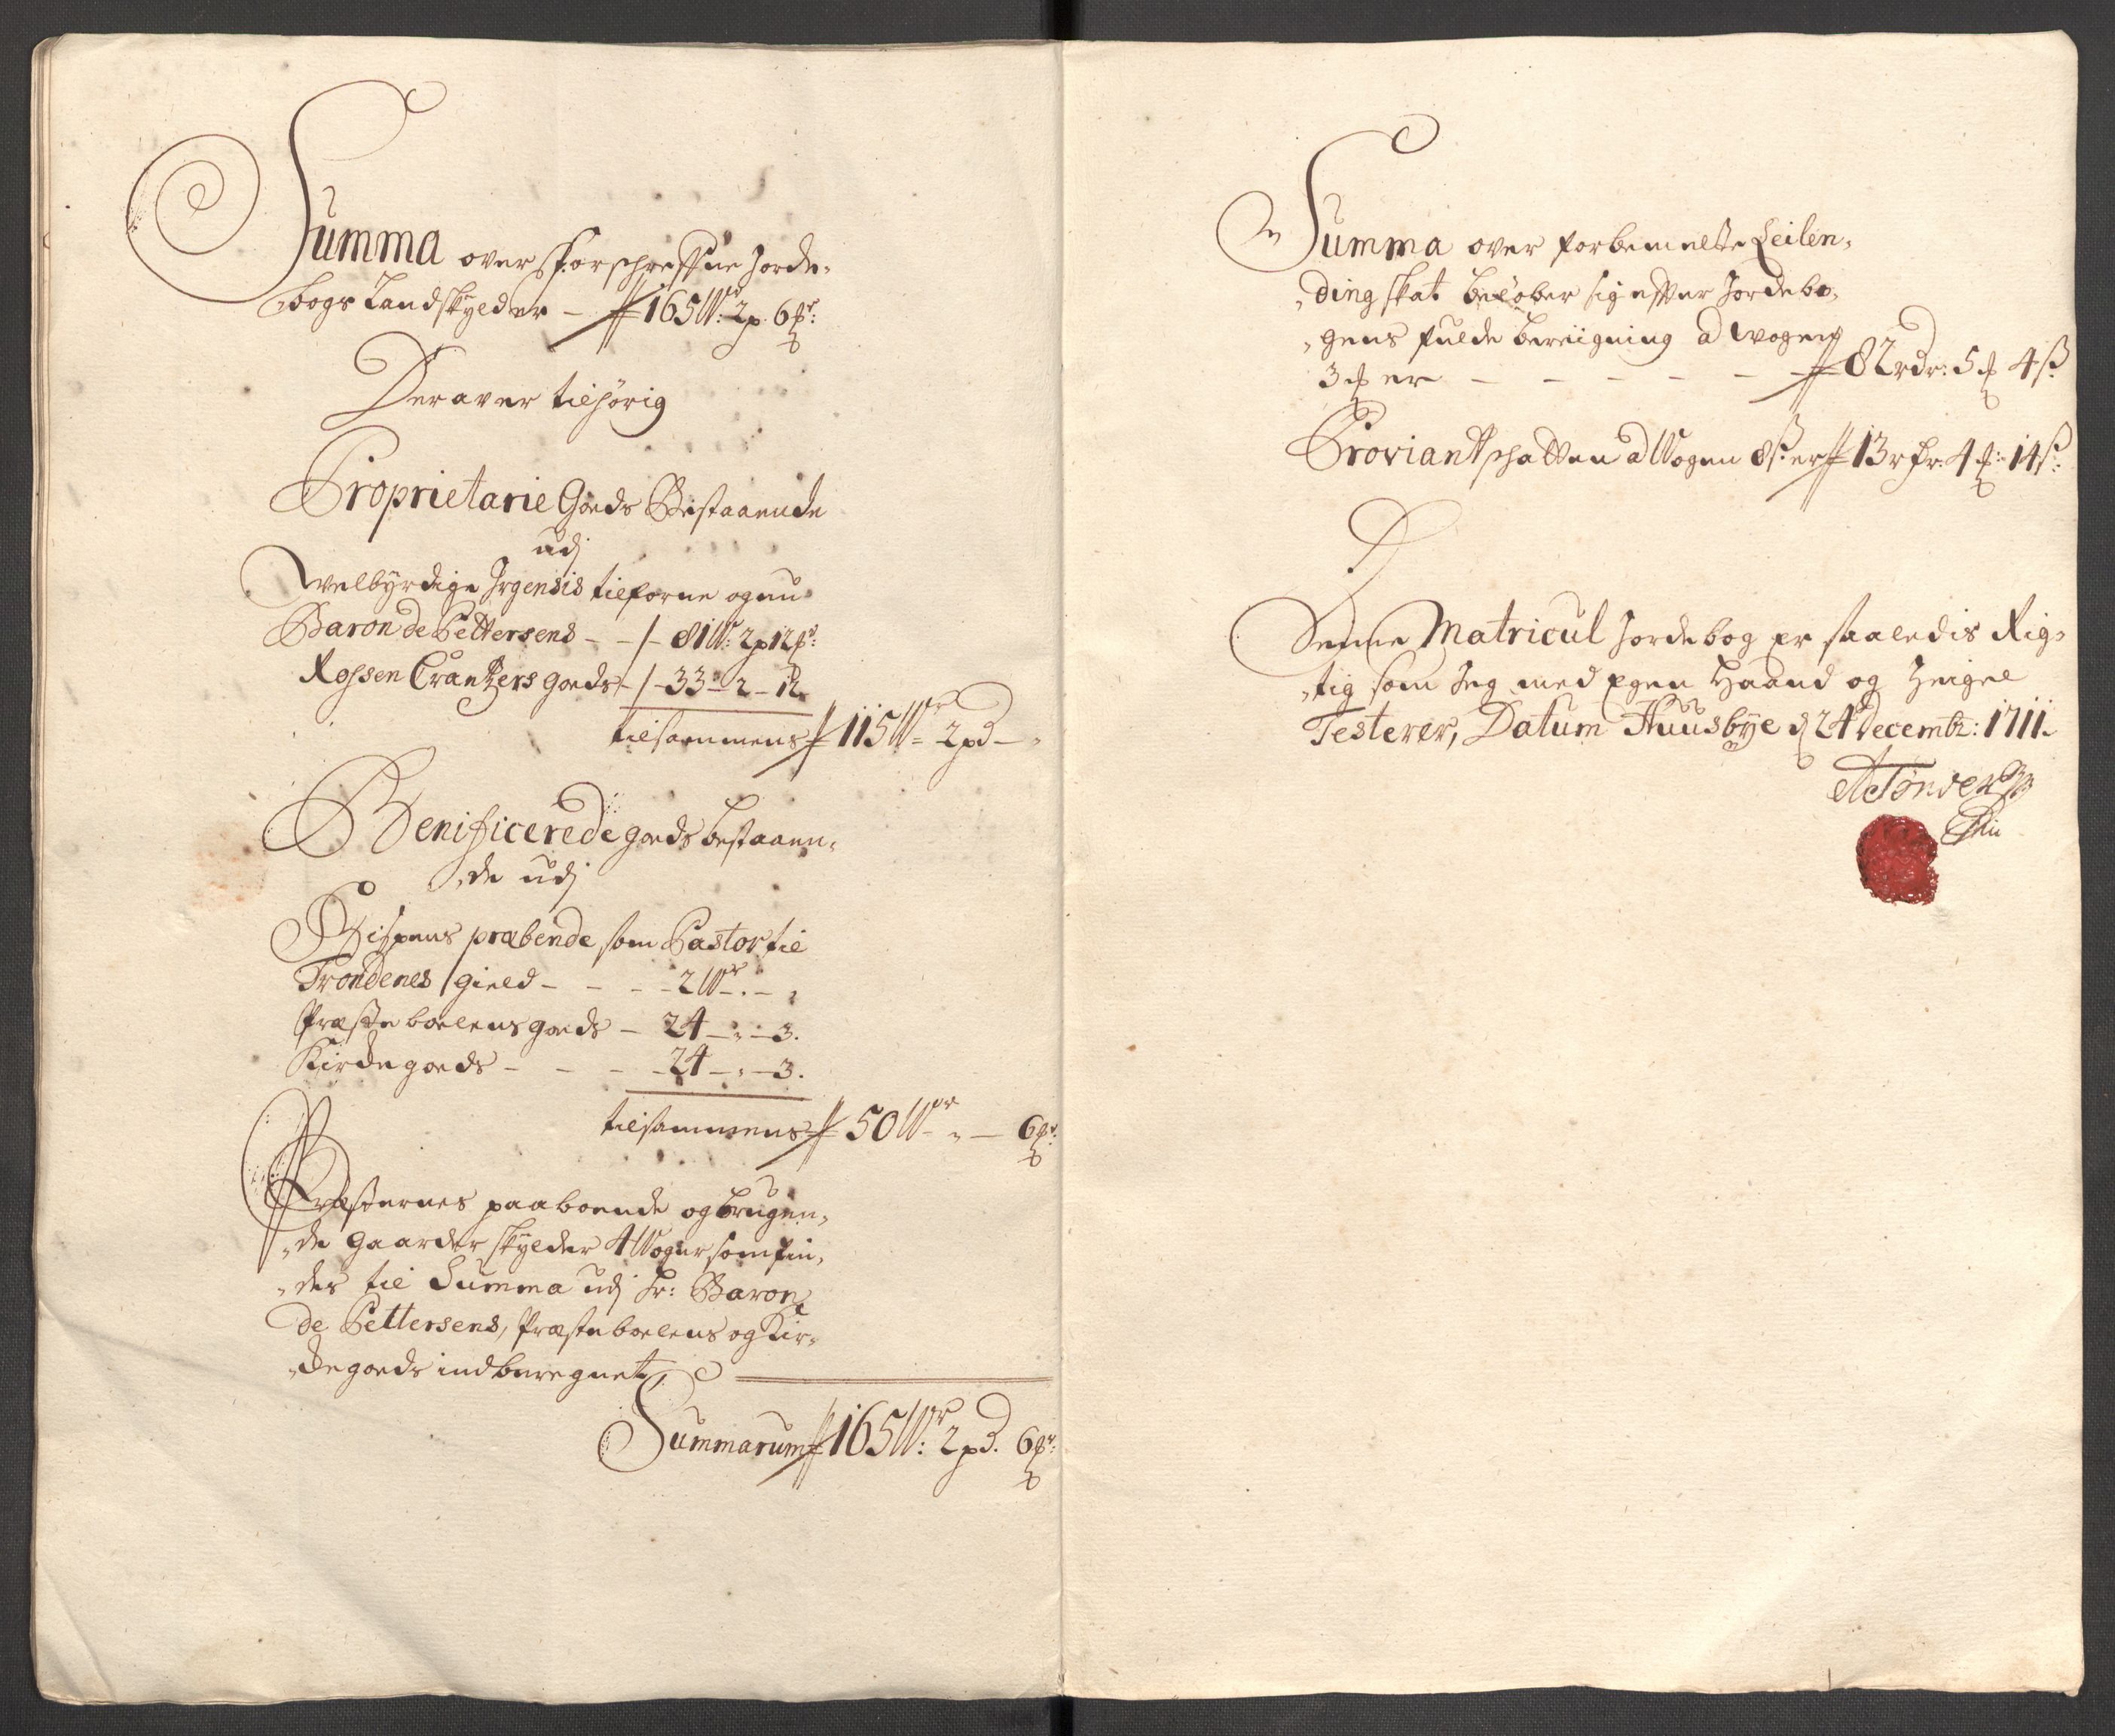 Summa over forschrefne Jorde,
bogs Landskylder - 165 W: 2 p. 6 ℔r:
Deraver tilhörig
Proprietarie Goeds Bestaaende
udj
Welbyrdige Irgensis tilforne og nu
Baron de Pettersens - - / - 81 Wr: 2 p 12 ℔r:
Rossen Crantzers goeds - / - 33 - 2 - 12
tilsammens 115 Wr - 2 pd - "
Benificerede goeds bestaaen,
,de udj
Bispens præbende, som Pastor til
Trondenes gield - - - - 2 Wr. - "
Præste boelens goeds - 24 - " - 3.
Kircke goeds - - - - 24 - " - 3.
tilsammens 50 Wr - " - 6 ℔r:
Præsternes paaboende og brugen,
,de gaarder skylder 4 Woger som fin,
,des til Summa udj Hr: Baron
de Pettersens, Præsteboelens og Kir,
,cke goeds indberegnet,
Summarum 165 Wr: 2 pd. 6 ℔r:
Summa over forbemelte Leilen,
,ding skat beløber sig effter Jordebo,
,gens fulde bereigning a wogen
3 ℔ er - - - - - - 82 rdr: 5 ℔ 4 ß
Proviantschatten a Wogen 8 ß. er 13 rdr: 4 ℔: 14 ß:
Denne Matricul Jordebog er saaledis Rig,
,tig som Jeg med Egen Haand og Zeigel
Testerer, Datum Huusbye d 24 decembr: 1711.
A Tønder